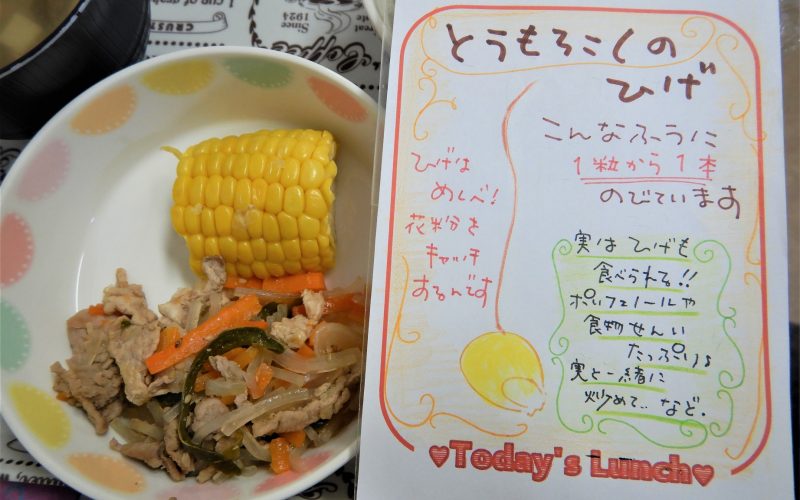 とうもろこしの
ひげ
こんなふうに
1粒から1本
のびています
ひげは
めしべ!
花粉を
キャッチ
するんです
実はひげも
食べられる!!
ポリフェノールや
食物せんい
たっぷり♪
実と一緒に
炒めて…など.
♥Today's Lunch♥
Since
1924
1 cup of
CRUSH
Coffee